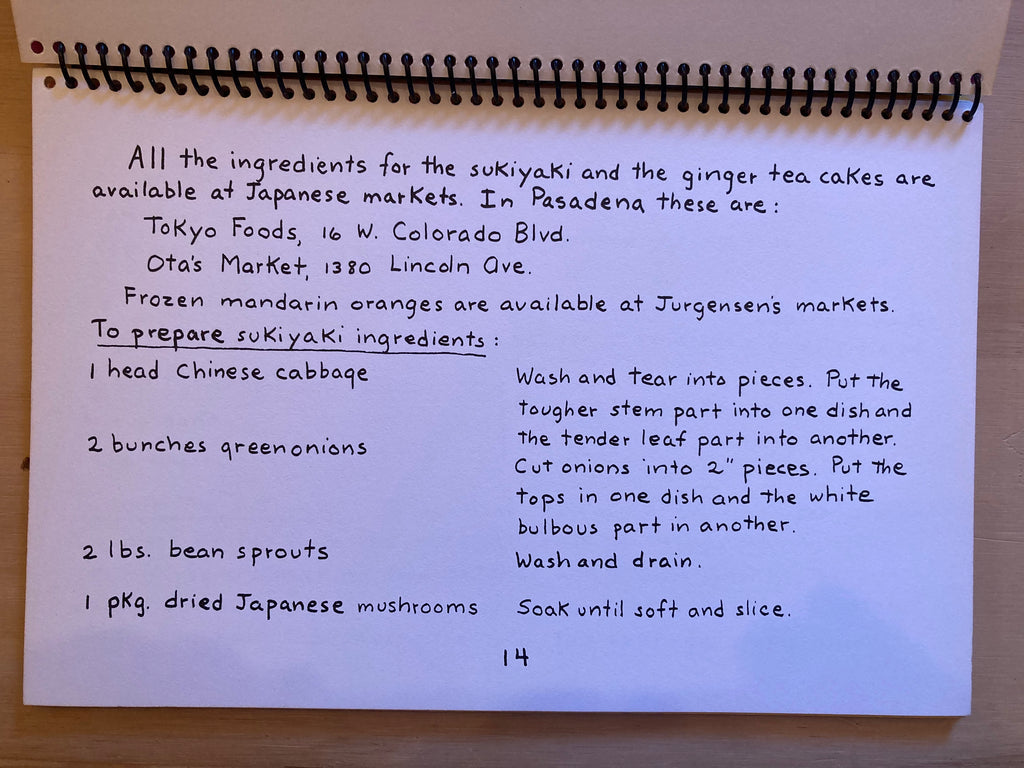 All the ingredients for the sukiyaki and the ginger tea cakes are
available at Japanese markets. In Pasadena these are:
Tokyo Foods, 16 W. Colorado Blvd.
Ota's Market, 1380 Lincoln Ave.
Frozen mandarin oranges are available at Jurgensen's markets.
To prepare sukiyaki ingredients:
1 head Chinese cabbage
Wash and tear into pieces. Put the
tougher stem part into one dish and
the tender leaf part into another.
2 bunches green onions
Cut onions into 2" pieces. Put the
tops in one dish and the white
bulbous part in another.
2 lbs. bean sprouts
Wash and drain.
1 pkg. dried Japanese mushrooms
Soak until soft and slice.
14